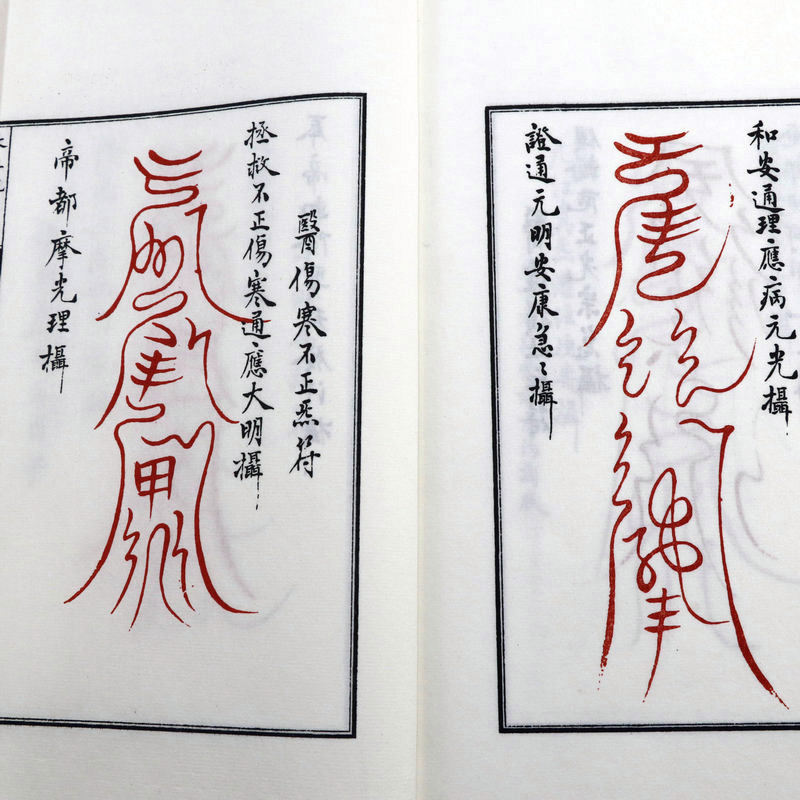 和安通理應病元光攝
證通元明安康急〻攝
醫傷寒不正炁符
拯救不正傷寒通應大明攝
帝都摩光理攝